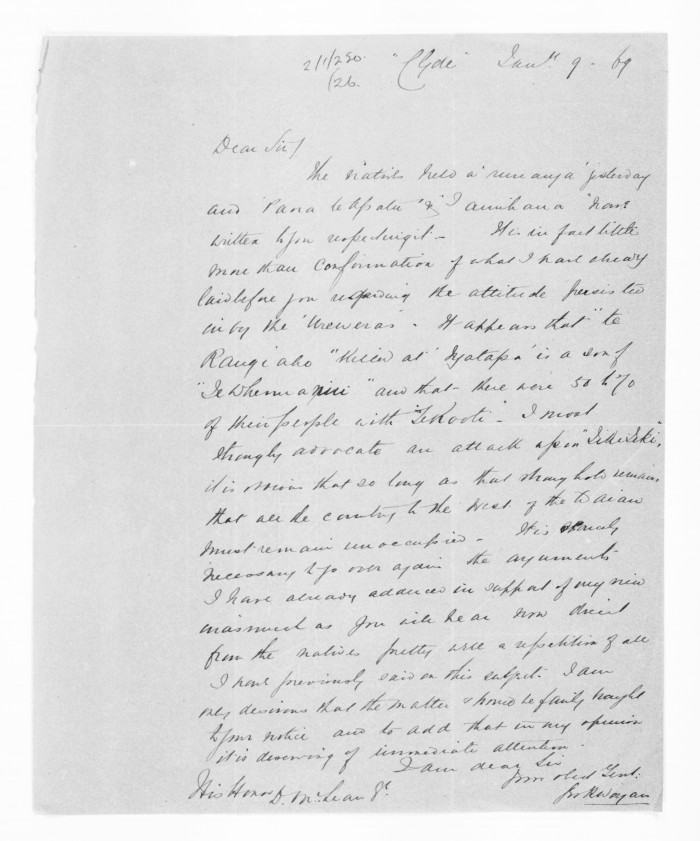 2/1/250.
/26.
"Clyde" Jany 9 - 69
Dear Sir/
The natives held a 'runanga' yesterday
and 'Paora te Apatu' & 'Tamihana' have
written to you respecting it - It is in fact little
more than confirmation of what I have already
laid before you regarding the attitude persisted
in by the 'Ureweras' - It appears that "te
Rangi aho" killed at 'Ngatapa' is a son of
"Te Whenuanui" and that there were 50 to 70
of their people with "Te Kooti" - I most
strongly advocate an attack upon "Tiki Tiki",
it is obvious that so long as that stronghold remains
that all the country to the West of the Waiau
must remain unoccupied - It is scarcely
necessary to go over again the arguments
I have already adduced in support of my view
inasmuch as you will hear now direct
from the natives pretty well a repetition of all
I have previously said on this subject. I am
only desirous that the matter should be fairly brought
to your notice and to add that in my opinion
it is deserving of immediate attention.
I am dear Sir
Your obedt Servt:
His Honor D. McLean